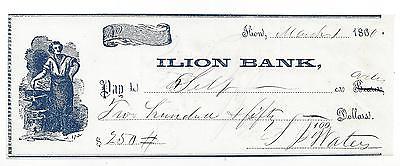 Ilion, March 1 186
ILION BANK,
Pay to Self or order Bearer
Two hundred & fifty Dollars.
$250 # Waters